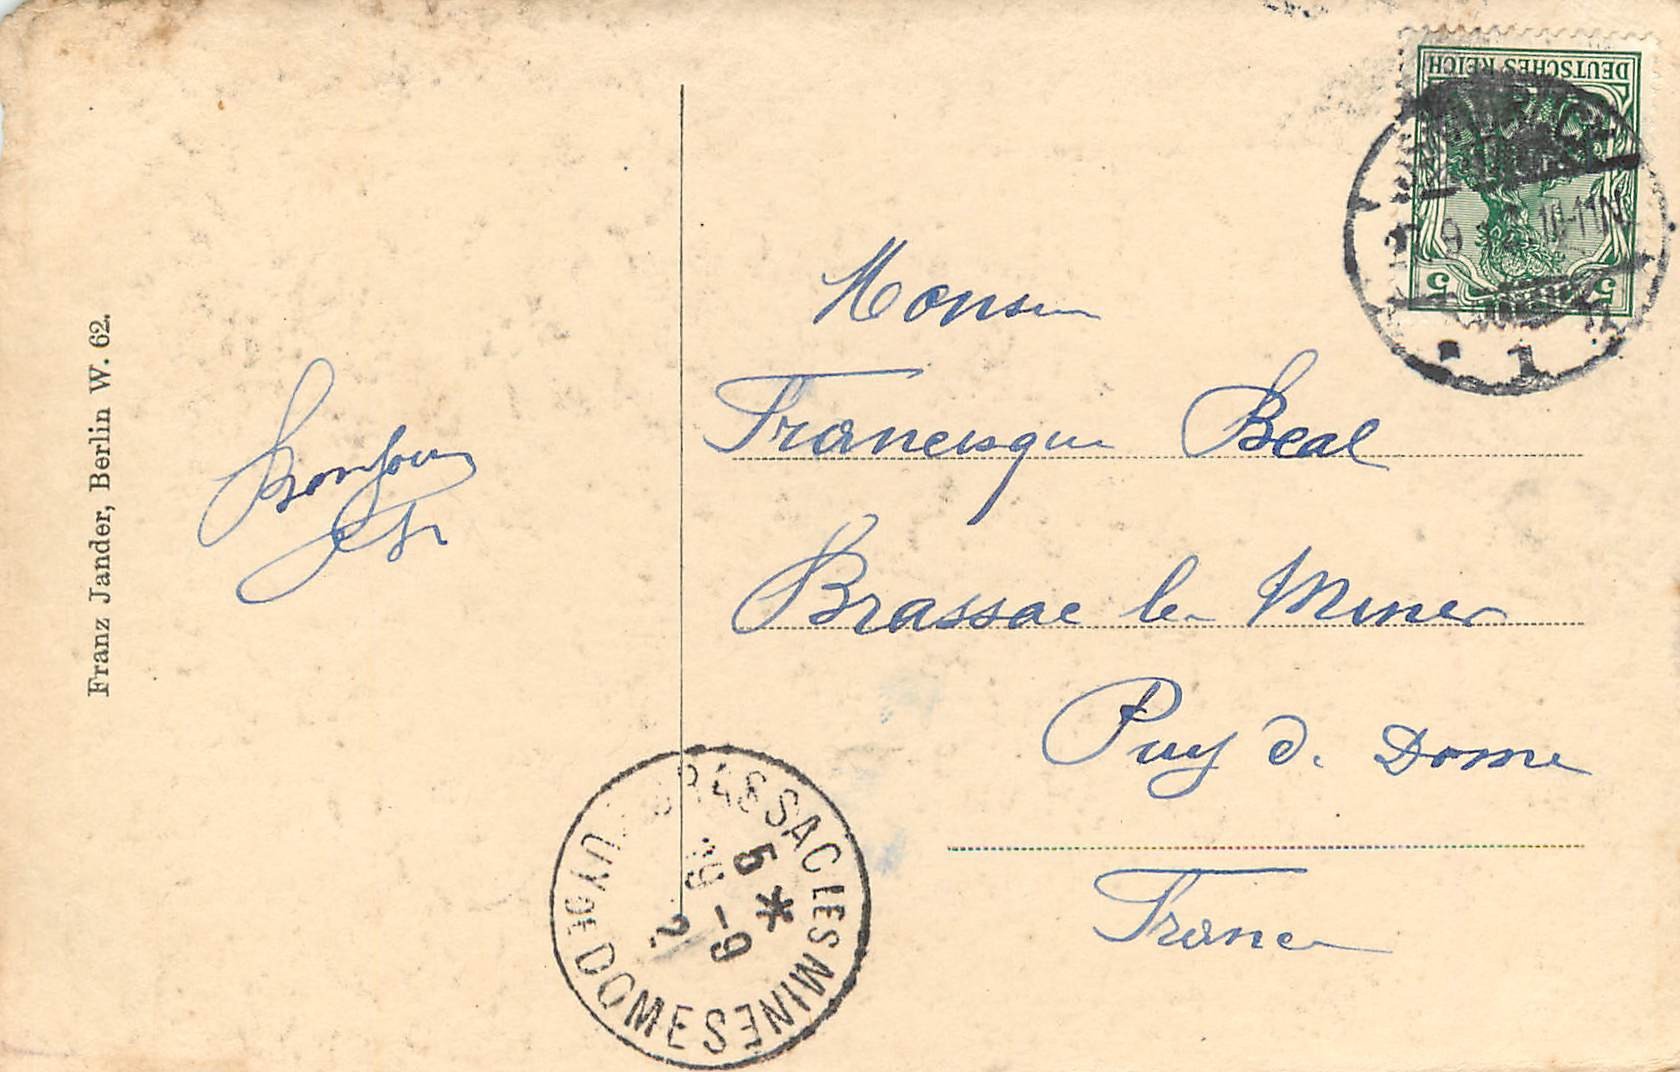 Franz Jander, Berlin W. 62.
Bonjour
DEUTSCHES REICH
5 5
10-11N
1
Monsieur
Francisque Beal
Brassac les Mines
Puy de Dome
France
BRASSAC LES MINES
PUY DE DOME
5 *
19 -9
2